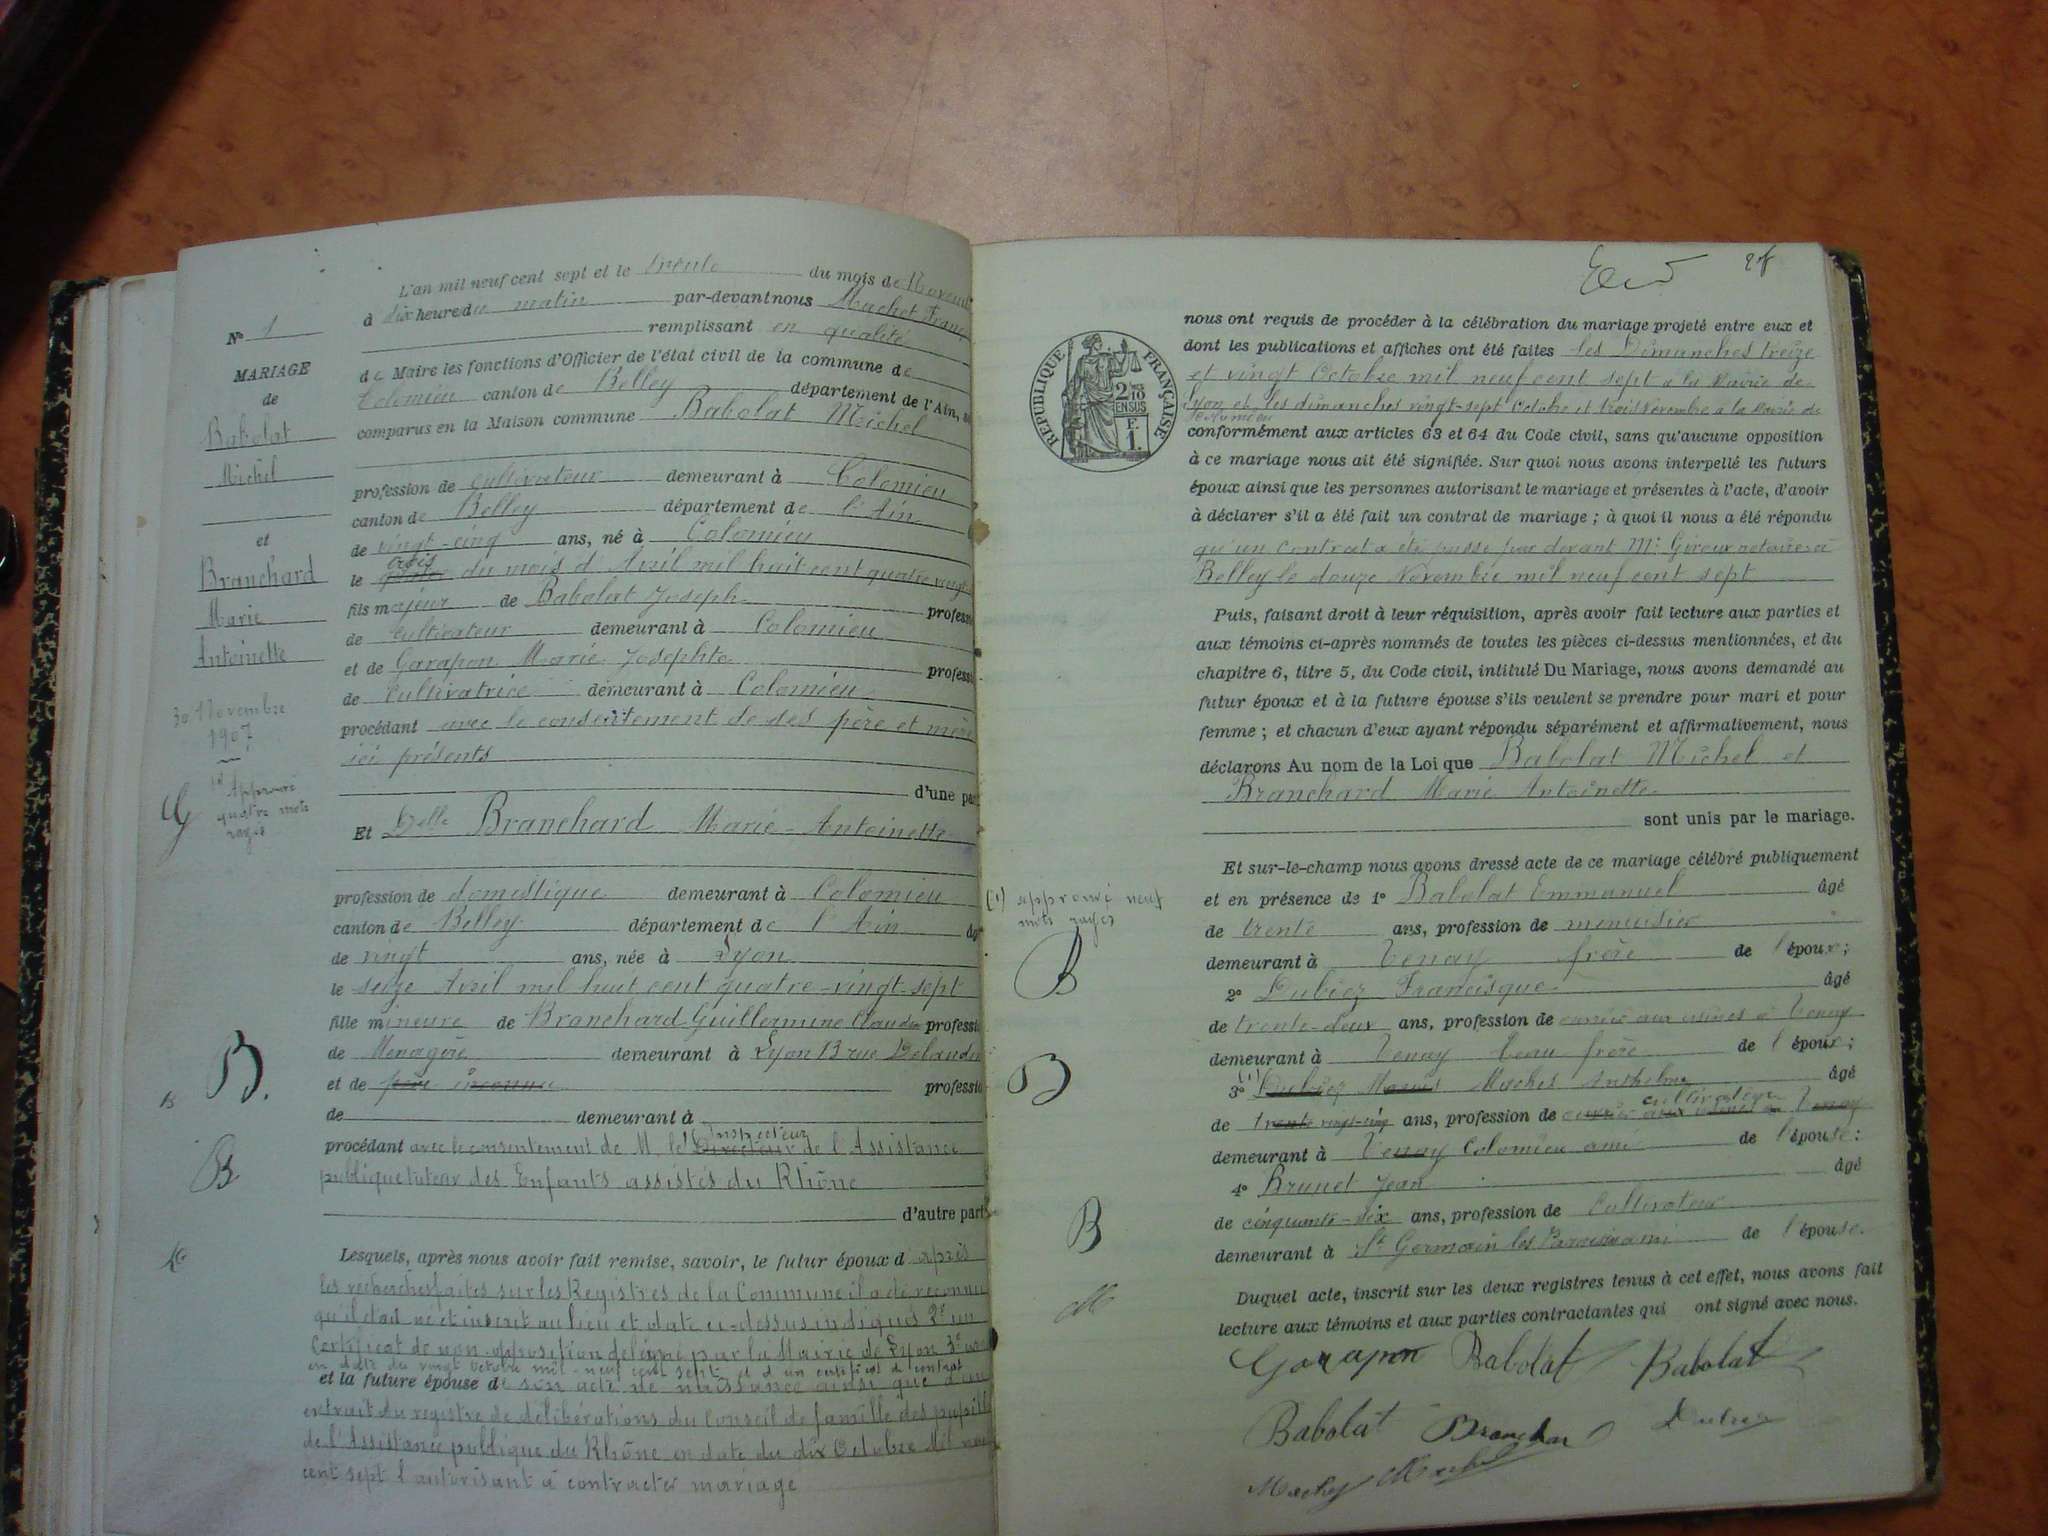 Nº 1
MARIAGE
de
Babolat
Michel
et
Branchard
Marie
Antoinette
30 Novembre
1907
Approuvé
quatre mots
rayés
L'an mil neuf cent sept et le trente du mois de
à dix heure du matin par-devant nous Machet
remplissant en qualité
de Maire les fonctions d'Officier de l'état civil de la commune de
Colomieu canton de Belley département de l'Ain,
comparus en la Maison commune Babolat Michel
profession de cultivateur demeurant à Colomieu
canton de Belley département de l'Ain
de vingt-cinq ans, né à Colomieu
trois
le du mois d'Avril mil huit cent quatre vingt
fils majeur de Babolat Joseph
de cultivateur demeurant à Colomieu
et de Garapon Marie Josephte
de cultivatrice demeurant à Colomieu
procédant avec le consentement de ses père et mère
ici présents
d'une
Et Delle Branchard Marie-Antoinette
profession de domestique demeurant à Colomieu
canton de Belley département de l'Ain
de vingt ans, née à Lyon
le seize Avril mil huit cent quatre-vingt-sept
fille mineure de Branchard Guillermine
de Ménagère demeurant à Lyon 13 rue
et de père inconnu
de demeurant à
Inspecteur
procédant avec le consentement de M. le Directeur de l'Assistance
publique tuteur des Enfants assistés du Rhône
d'autre
Lesquels, après nous avoir fait remise, savoir, le futur époux d'après
les recherches faites sur les Registres de la Commune il a été reconnu
qu'il était né et inscrit au lieu et date ci-dessus indiqués 2º un
Certificat de non-opposition délivré par la Mairie de Lyon 3º
en date du vingt octobre mil-neuf cent sept et d'un certificat de contrat
et la future épouse de son acte de naissance ainsi que d'un
extrait du registre de délibérations du Conseil de famille des
de l'Assistance publique du Rhône en date du dix Octobre
cent sept l'autorisant à contracter mariage
B.
B
B
RÉPUBLIQUE FRANÇAISE
2/10
EN SUS
F.
1.
nous ont requis de procéder à la célébration du mariage projeté entre eux et
dont les publications et affiches ont été faites les Dimanches treize
et vingt Octobre mil neuf cent sept à la Mairie de
Lyon et les dimanches vingt-sept Octobre et trois Novembre à la Mairie de
conformément aux articles 63 et 64 du Code civil, sans qu'aucune opposition
à ce mariage nous ait été signifiée. Sur quoi nous avons interpellé les futurs
époux ainsi que les personnes autorisant le mariage et présentes à l'acte, d'avoir
à déclarer s'il a été fait un contrat de mariage ; à quoi il nous a été répondu
qu'un Contrat a été passé par devant Me Giroux notaire à
Belley le douze Novembre mil neuf cent sept
Puis, faisant droit à leur réquisition, après avoir fait lecture aux parties et
aux témoins ci-après nommés de toutes les pièces ci-dessus mentionnées, et du
chapitre 6, titre 5, du Code civil, intitulé Du Mariage, nous avons demandé au
futur époux et à la future épouse s'ils veulent se prendre pour mari et pour
femme ; et chacun d'eux ayant répondu séparément et affirmativement, nous
déclarons Au nom de la Loi que Babolat Michel et
Branchard Marie Antoinette
sont unis par le mariage.
Et sur-le-champ nous avons dressé acte de ce mariage célébré publiquement
et en présence de 1º Babolat Emmanuel âgé
de trente ans, profession de menuisier
demeurant à Tenay frère de l'époux ;
2º Dubiez Francisque âgé
de trente-deux ans, profession de ouvrier aux usines à Tenay
demeurant à Tenay beau frère de l'époux ;
3º (1) Dubiez Marius Maches Anthelme âgé
cultivateur
de trente vingt-cinq ans, profession de ouvrier aux usines à Tenay
demeurant à Tenay Colomieu ami de l'épouse :
4º Brunet Jean âgé
de cinquante-six ans, profession de Cultivateur
demeurant à St Germain les Paroisses ami de l'épouse.
Duquel acte, inscrit sur les deux registres tenus à cet effet, nous avons fait
lecture aux témoins et aux parties contractantes qui ont signé avec nous.
(1) approuvé neuf
mots rayés
B
B
B
Garapon Babolat Babolat
Babolat Branchar